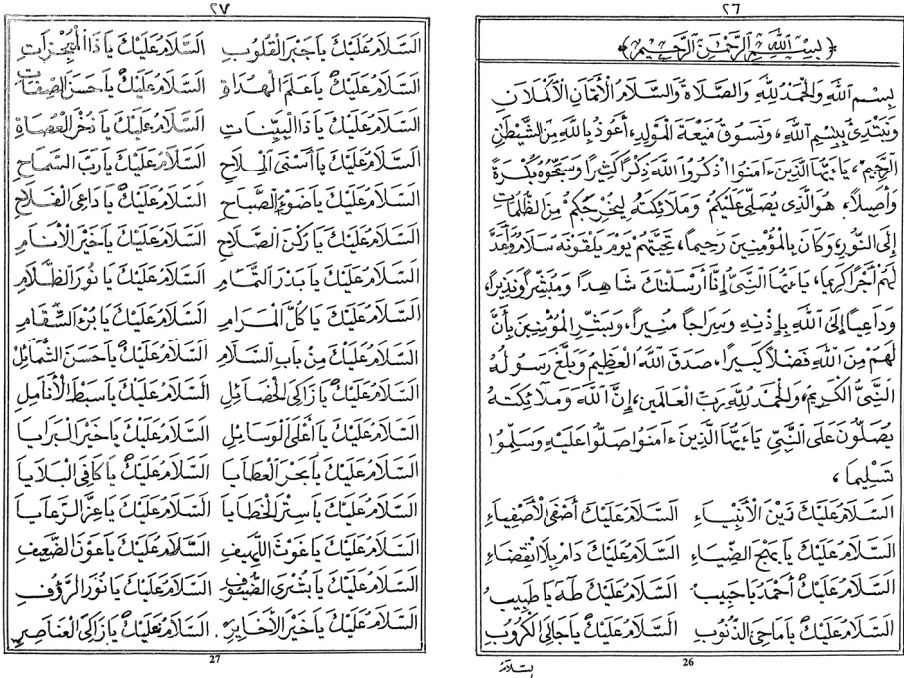 ٢٦
﴿بِسْــمِ اللهِ الرَّحْمٰنِ الرَّحِيْمِ﴾
بِسْمِ اللهِ وَالْحَمْدُ لِلّٰهِ وَالصَّلَاةُ وَالسَّلَامُ الْأَتَمَّانِ الْأَكْمَلَانِ
وَنَبْتَدِئُ بِبِسْمِ اللهِ، وَنَسُوقُ الْمَوْلِدِ، أَعُوذُ بِاللهِ مِنَ الشَّيْطٰنِ
الرَّجِيْمِ، يَاأَيُّهَا الَّذِينَ ءَامَنُوا اذْكُرُوا اللهَ ذِكْرًا كَثِيرًا وَسَبِّحُوهُ بُكْرَةً
وَأَصِيلًا، هُوَ الَّذِي يُصَلِّي عَلَيْكُمْ وَمَلَائِكَتُهُ لِيُخْرِجَكُمْ مِنَ الظُّلُمَاتِ
إِلَى النُّورِ، وَكَانَ بِالْمُؤْمِنِينَ رَحِيمًا، تَحِيَّتُهُمْ يَوْمَ يَلْقَوْنَهُ سَلَامٌ وَأَعَدَّ
لَهُمْ أَجْرًا كَرِيمًا، يَاءَيُّهَا النَّبِيُّ إِنَّا أَرْسَلْنَاكَ شَاهِدًا وَمُبَشِّرًا وَنَذِيرًا،
وَدَاعِيًا إِلَى اللهِ بِإِذْنِهِ وَسِرَاجًا مُنِيرًا، وَبَشِّرِ الْمُؤْمِنِينَ بِأَنَّ
لَهُمْ مِنَ اللهِ فَضْلًا كَبِيرًا. صَدَقَ اللهُ الْعَظِيمُ وَبَلَّغَ رَسُولُهُ
النَّبِيُّ الْكَرِيمُ، وَالْحَمْدُ لِلّٰهِ رَبِّ الْعَالَمِينَ، إِنَّ اللهَ وَمَلَائِكَتَهُ
يُصَلُّونَ عَلَى النَّبِيِّ يَاءَيُّهَا الَّذِينَ ءَامَنُوا صَلُّوا عَلَيْهِ وَسَلِّمُوا
تَسْلِيمًا،
اَلسَّلَامُ عَلَيْكَ زَيْنَ الْأَنْبِيَاءِ اَلسَّلَامُ عَلَيْكَ أَصْفَى الْأَصْفِيَاءِ
اَلسَّلَامُ عَلَيْكَ يَا الضِّيَاءِ اَلسَّلَامُ عَلَيْكَ دَامَ بِلَا انْقِضَاءِ
اَلسَّلَامُ عَلَيْكَ أَحْمَدُ يَا حَبِيبُ اَلسَّلَامُ عَلَيْكَ طٰهَ يَا طَبِيبُ
اَلسَّلَامُ عَلَيْكَ يَا مَاحِيَ الذُّنُوبِ اَلسَّلَامُ عَلَيْكَ يَا جَالِيَ الْكُرُوبِ
26
بسلام
٢٧
اَلسَّلَامُ عَلَيْكَ يَا جَبْرَ الْقُلُوبِ اَلسَّلَامُ عَلَيْكَ يَا ذَا الْمُعْجِزَاتِ
اَلسَّلَامُ عَلَيْكَ يَا عَلَمَ الْهُدَاةِ اَلسَّلَامُ عَلَيْكَ يَا حَسَنَ الصِّفَاتِ
اَلسَّلَامُ عَلَيْكَ يَا ذَا الْبَيِّنَاتِ اَلسَّلَامُ عَلَيْكَ يَا ذُخْرَ الْعُصَاةِ
اَلسَّلَامُ عَلَيْكَ يَا أَسْنَى الْمِلَاحِ اَلسَّلَامُ عَلَيْكَ يَا رَبَّ السَّمَاحِ
اَلسَّلَامُ عَلَيْكَ يَا ضَوْءَ الصَّبَاحِ اَلسَّلَامُ عَلَيْكَ يَا دَاعِيَ الْفَلَاحِ
اَلسَّلَامُ عَلَيْكَ يَا رُكْنَ الصَّلَاحِ اَلسَّلَامُ عَلَيْكَ يَا خَيْرَ الْأَنَامِ
اَلسَّلَامُ عَلَيْكَ يَا بَدْرَ التَّمَامِ اَلسَّلَامُ عَلَيْكَ يَا نُورَ الظَّلَامِ
اَلسَّلَامُ عَلَيْكَ يَا كُلَّ الْمَرَامِ اَلسَّلَامُ عَلَيْكَ يَا بُرْءَ السَّقَامِ
اَلسَّلَامُ عَلَيْكَ مِنْ بَابِ السَّلَامِ اَلسَّلَامُ عَلَيْكَ يَا حَسَنَ الشَّمَائِلْ
اَلسَّلَامُ عَلَيْكَ يَا زَاكِيَ الْخَصَائِلِ اَلسَّلَامُ عَلَيْكَ يَا سَبْطَ الْأَنَامِلِ
اَلسَّلَامُ عَلَيْكَ يَا أَعْلَى الْوَسَائِلِ اَلسَّلَامُ عَلَيْكَ يَا خَيْرَ الْبَرَايَا
اَلسَّلَامُ عَلَيْكَ يَا بَحْرَ الْعَطَايَا اَلسَّلَامُ عَلَيْكَ يَا كَافِي الْبَلَايَا
اَلسَّلَامُ عَلَيْكَ يَا سِتْرَ الْخَطَايَا اَلسَّلَامُ عَلَيْكَ يَا عِزَّ الرَّعَايَا
اَلسَّلَامُ عَلَيْكَ يَا غَوْثَ اللَّهِيفِ اَلسَّلَامُ عَلَيْكَ يَا عَوْنَ الضَّعِيفِ
اَلسَّلَامُ عَلَيْكَ يَا بُشْرَى الضُّيُوفِ اَلسَّلَامُ عَلَيْكَ يَا نُورَ الرَّؤُفِ
اَلسَّلَامُ عَلَيْكَ يَا خَيْرَ الْأَخَايِرْ. اَلسَّلَامُ عَلَيْكَ يَا زَاكِيَ الْعَنَاصِرِ
27